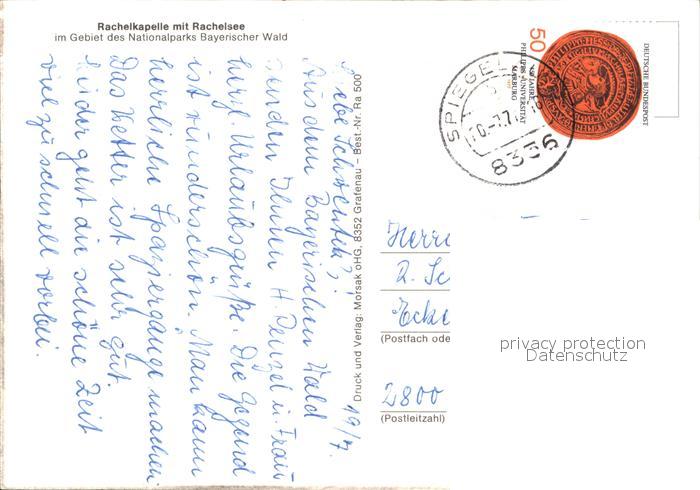 Rachelkapelle mit Rachelsee
im Gebiet des Nationalparks Bayerischer Wald
Liebe
19/7.
Aus dem Bayerischen Wald
senden Ihnen H. Penzel u. Frau
herzl. Urlaubsgrüße. Die Gegend
ist wunderschön. Man kann
herrliche Spaziergänge machen.
Das Wetter ist sehr gut.
Leider geht die schöne Zeit
viel zu schnell vorbei.
Druck und Verlag: Morsak oHG, 8352 Grafenau – Best.-Nr. Ra 500
DEUTSCHE BUNDESPOST
50
450 JAHRE
PHILIPPS-UNIVERSITÄT
MARBURG
SPIEGEL
8356
Herrn
Ecke
(Postfach ode
2800
(Postleitzahl)
privacy protection
Datenschutz